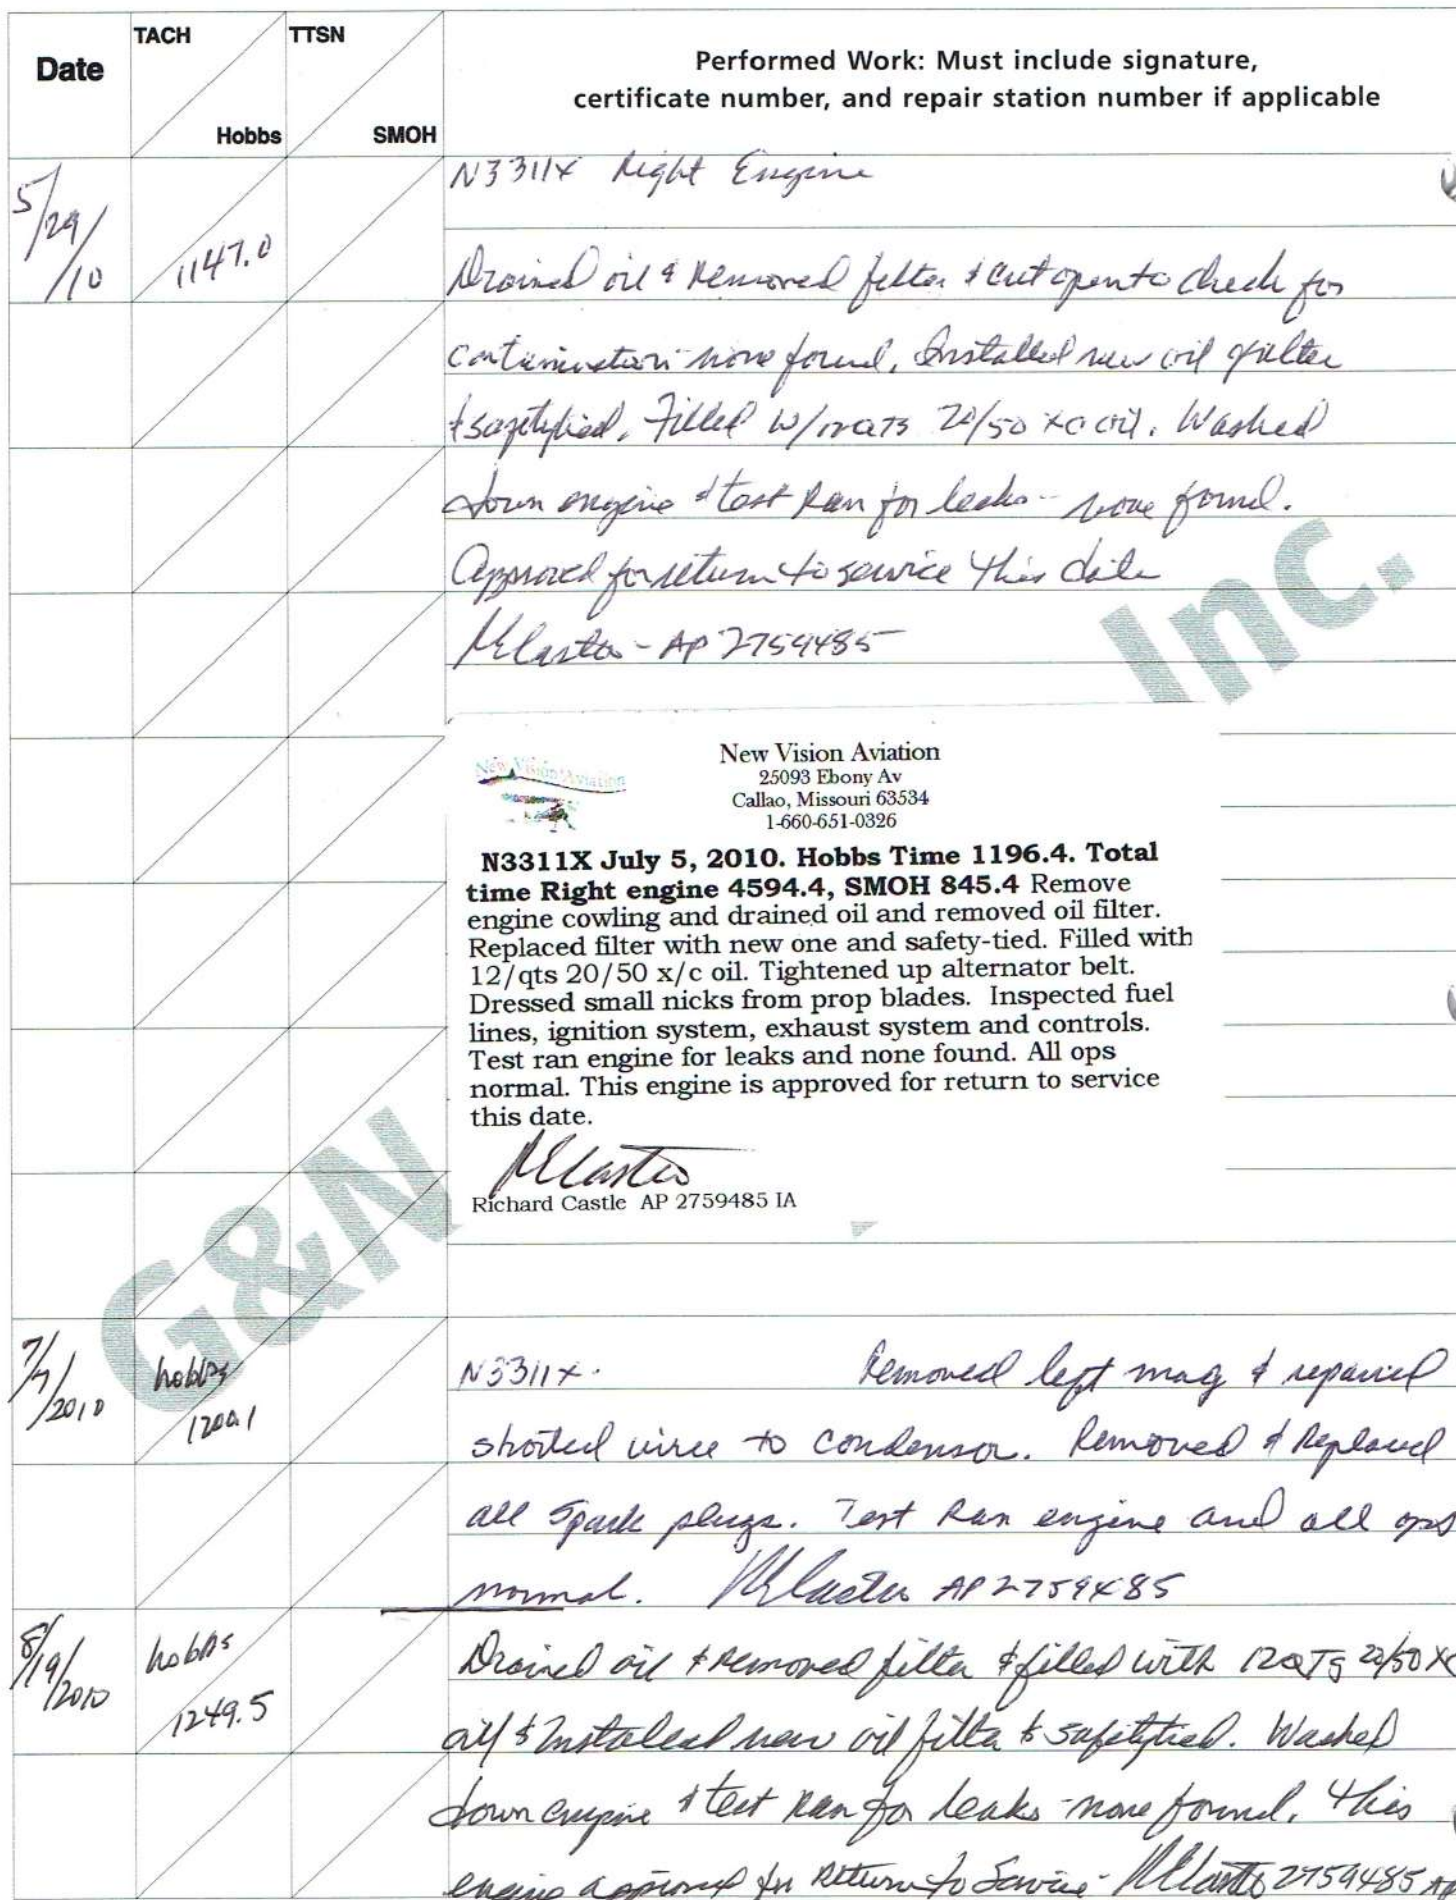 Date
TACH
Hobbs
TTSN
SMOH
Performed Work: Must include signature,
certificate number, and repair station number if applicable
5/29/10
1147.0
N3311X Right Engine
Drained oil & Removed filter & cut open to check for
contamination none found. Installed new oil filter
& safetytied. Filled w/ 20/50 XC oil. Washed
down engine & test Ran for leaks - none found.
Approved for return to service this date
AP 2759485
Inc.
New Vision Aviation
New Vision Aviation
25093 Ebony Av
Callao, Missouri 63534
1-660-651-0326
N3311X July 5, 2010. Hobbs Time 1196.4. Total
time Right engine 4594.4, SMOH 845.4 Remove
engine cowling and drained oil and removed oil filter.
Replaced filter with new one and safety-tied. Filled with
12/qts 20/50 x/c oil. Tightened up alternator belt.
Dressed small nicks from prop blades. Inspected fuel
lines, ignition system, exhaust system and controls.
Test ran engine for leaks and none found. All ops
normal. This engine is approved for return to service
this date.
Richard Castle AP 2759485 IA
G&N
7/7/2010
hobbs
1200.1
N3311X. Removed left mag & repaired
shorted wire to condensor. Removed & Replaced
all spark plugs. Test Ran engine and all ops
normal. AP 2759485
8/19/2010
hobbs
1249.5
Drained oil & removed filter & filled with 12 QTS 20/50 XC
oil & Installed new oil filter & safetytied. Washed
down engine & test ran for leaks - none found. This
engine approved for Return to Service - 2759485 AP